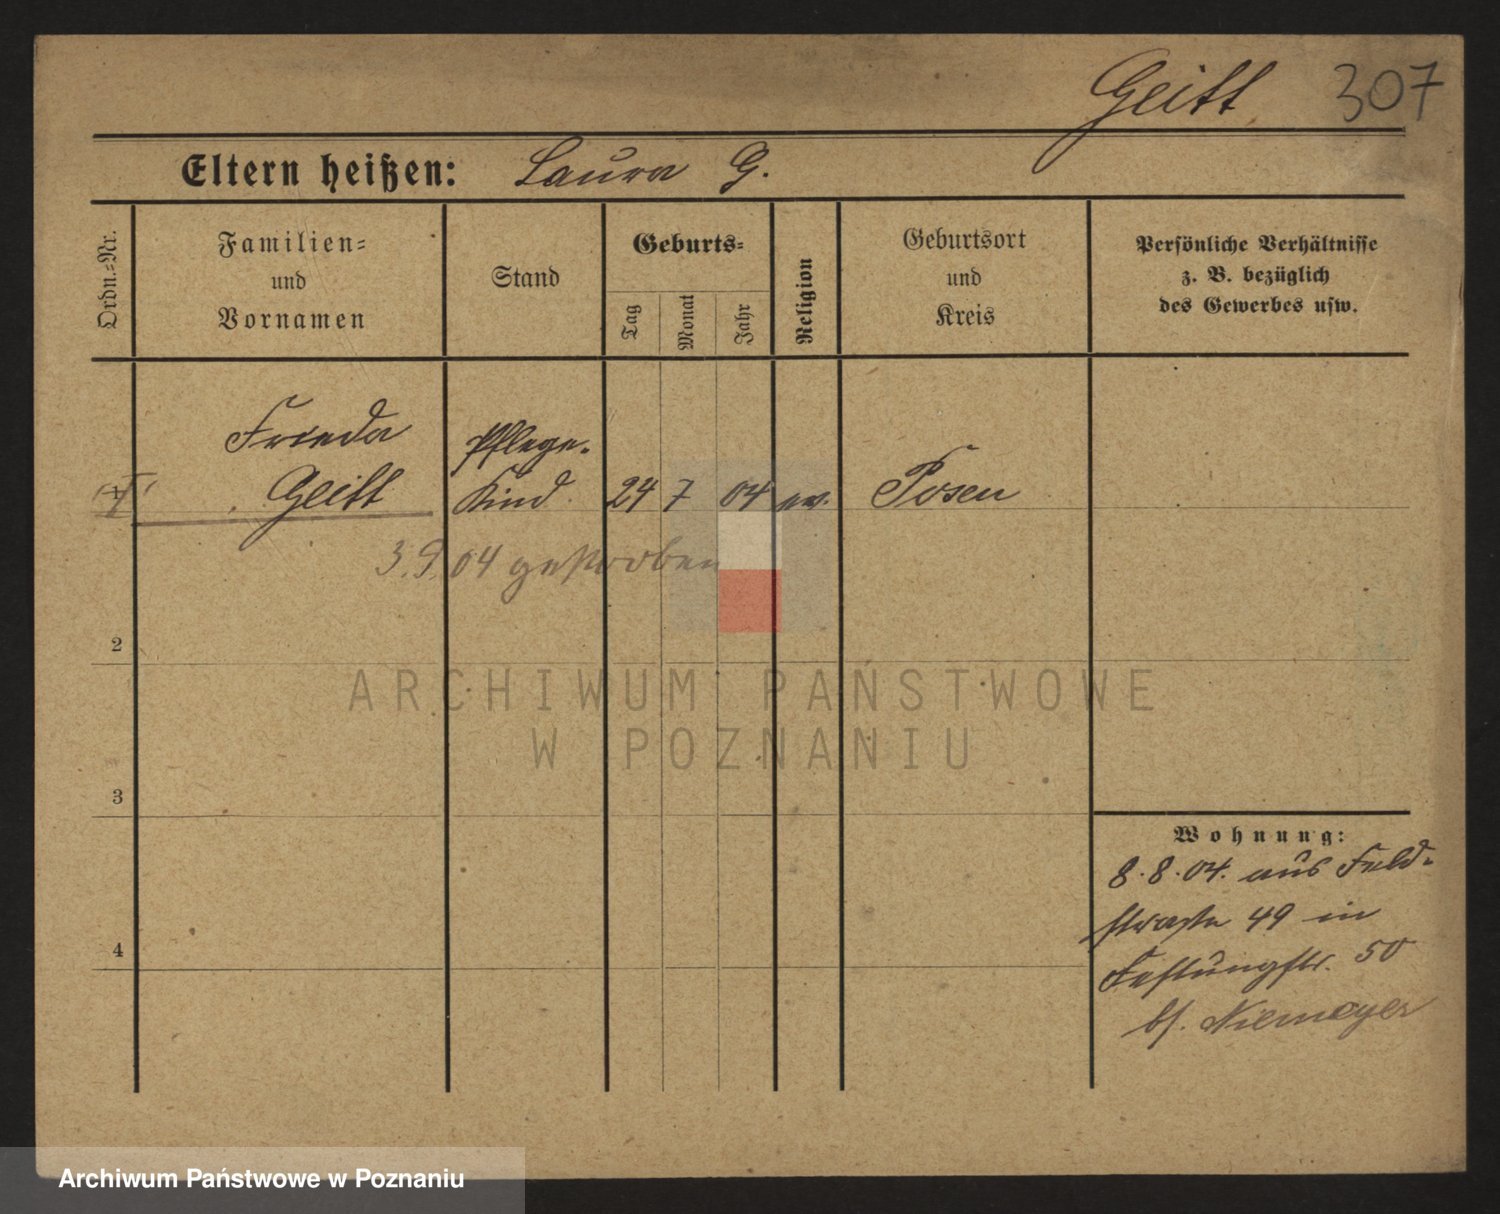 Geitt 307
Eltern heißen: Laura G.
Ordn.-Nr.
Familien-
und
Vornamen
Stand
Geburts-
Tag
Monat
Jahr
Religion
Geburtsort
und
Kreis
Persönliche Verhältnisse
z. B. bezüglich
des Gewerbes usw.
Frieda Pflege-
1 Geitt Kind 24 7 04 ev. Posen
3.9.04 gestorben
2
ARCHIWUM PAŃSTWOWE
W POZNANIU
3
Wohnung:
8.8.04. aus Feld-
straße 49 in
4
Festungstr. 50
bf. Niemeyer
Archiwum Państwowe w Poznaniu